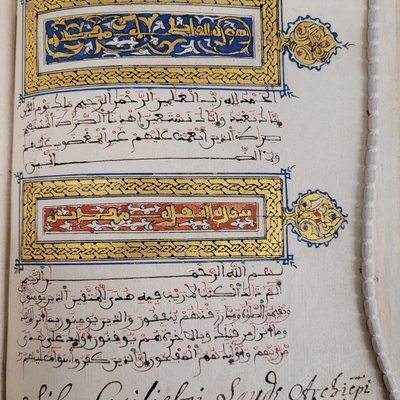 سورة البقرة مدنية
الحمد لله رب العلمين الرحمن الرحيم ملك يوم الدين
إياك نعبد وإياك نستعين اهدنا الصرط المستقيم
صرط الذين أنعمت عليهم غير المغضوب عليهم
ولا الضالين
بسم الله الرحمن الرحيم
الم ذلك الكتب لا ريب فيه هدى للمتقين الذين يومنون
ويقيمون الصلوة ومما رزقنهم ينفقون والذين يومنون بما أنزل
وما أنزل من قبلك وبالاخرة هم يوقنون أولئك على هدى
من ربهم وأولئك هم المفلحون إن الذين كفروا سواء عليهم
Guilielmi Laude Archiepi